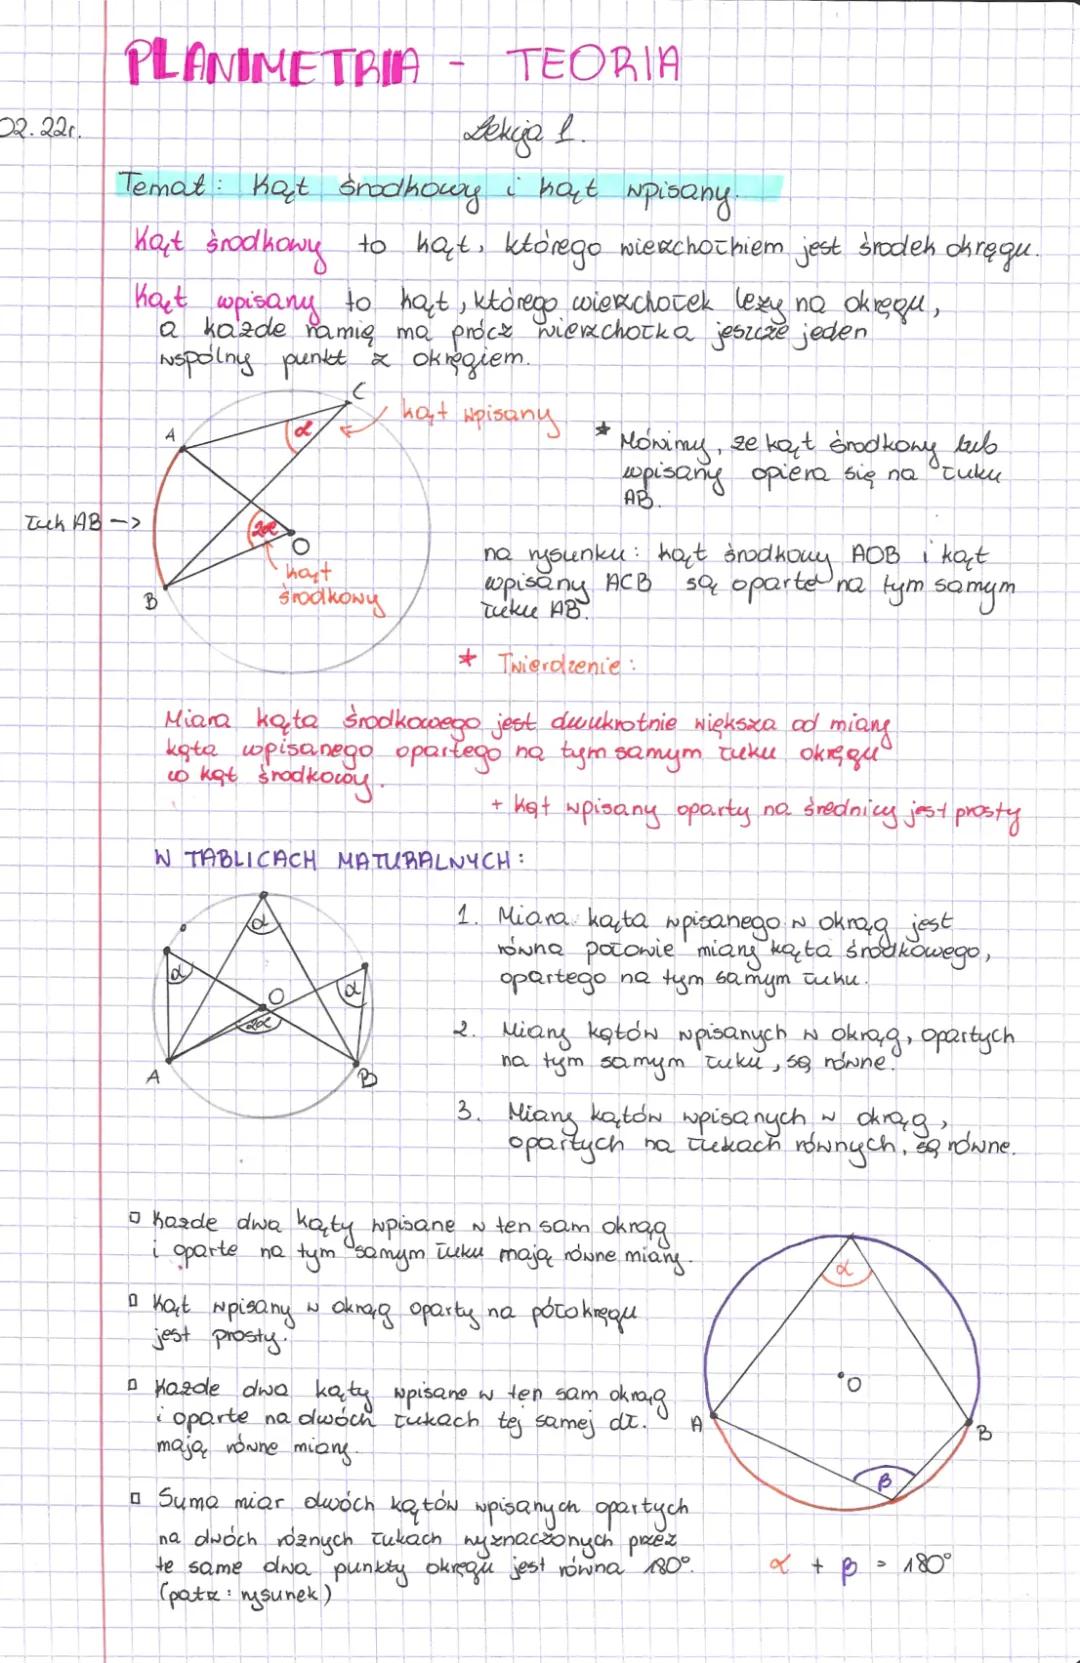 PLANIMETRIA - TEORIA
02.22r.
Lekcja 1.
Temat: Kąt środkowy i kąt wpisany.
Kąt środkowy to kąt, którego wierzchołkiem jest środek okręgu.
Kąt wpisany to kąt, którego wierzchołek leży na okręgu,
a każde ramię ma prócz wierzchołka jeszcze jeden
wspólny punkt z okręgiem.
C
kąt wpisany
A
α
* Mówimy, że kąt środkowy lub
wpisany opiera się na łuku
AB.
Łuk AB ->
2α
O
kąt
środkowy
B
na rysunku: kąt środkowy AOB i kąt
wpisany ACB są oparte na tym samym
łuku AB.
* Twierdzenie:
Miara kąta środkowego jest dwukrotnie większa od miary
kąta wpisanego opartego na tym samym łuku okręgu
co kąt środkowy.
+ kąt wpisany oparty na średnicy jest prosty
W TABLICACH MATURALNYCH:
α
α
α
O
2α
A
B
1. Miara kąta wpisanego w okrąg jest
równa połowie miary kąta środkowego,
opartego na tym samym łuku.
2. Miary kątów wpisanych w okrąg, opartych
na tym samym łuku, są równe.
3. Miary kątów wpisanych w okrąg,
opartych na łukach równych, są równe.
▫ Każde dwa kąty wpisane w ten sam okrąg
i oparte na tym samym łuku mają równe miary.
▫ Kąt wpisany w okrąg oparty na półokręgu
jest prosty.
▫ Każde dwa kąty wpisane w ten sam okrąg
i oparte na dwóch łukach tej samej dł.
mają równe miary.
▫ Suma miar dwóch kątów wpisanych opartych
na dwóch różnych łukach wyznaczonych przez
te same dwa punkty okręgu jest równa 180°.
(patrz: rysunek)
α
O
A
B
β
α + β = 180°